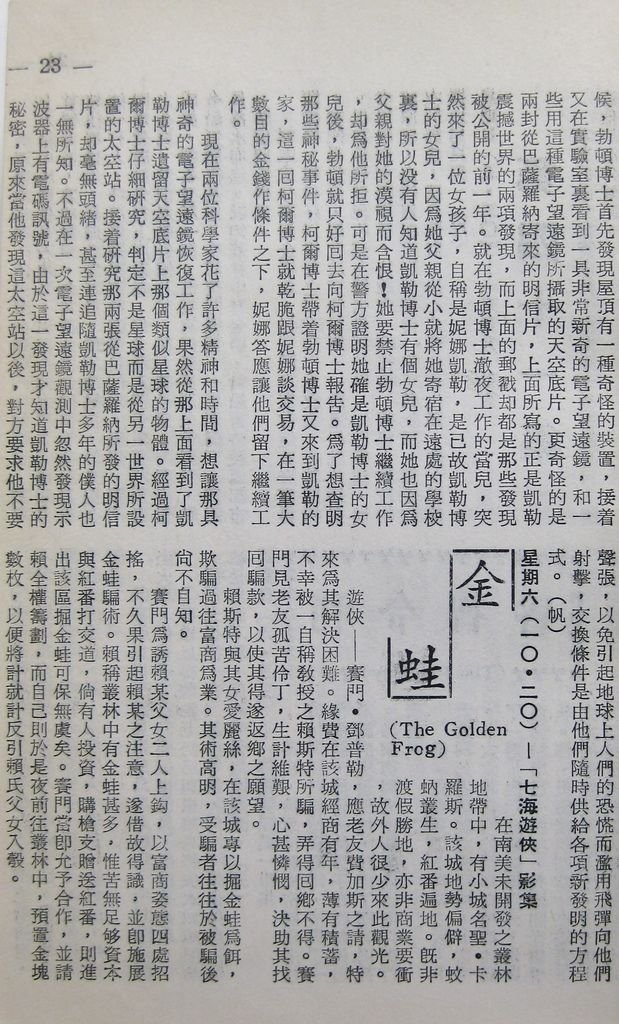 — 23 —
候，勃頓博士首先發現屋頂有一種奇怪的裝置，接着
又在實驗室裏看到一具非常新奇的電子望遠鏡，和一
些用這種電子望遠鏡所攝取的天空底片。更奇怪的是
兩封從巴薩羅納寄來的明信片，上面所寫的正是凱勒
震撼世界的兩項發現，而上面的郵戳却都是那些發現
被公開的前一年。就在勃頓博士澈夜工作的當兒，突
然來了一位女孩子，自稱是妮娜凱勒，是已故凱勒博
士的女兒，因爲她父親從小就將她寄宿在遠處的學校
裏，所以没有人知道凱勒博士有個女兒，而她也因爲
父親對她的漠視而含恨！她要禁止勃頓博士繼續工作
，却爲他所拒。可是在警方證明她確是凱勒博士的女
兒後，勃頓就只好回去向柯爾博士報告。爲了想查明
那些神秘事件，柯爾博士帶着勃頓博士又來到凱勒的
家，這一回柯爾博士就乾脆跟妮娜談交易，在一筆大
數目的金錢作條件之下，妮娜答應讓他們留下繼續工
作。
現在兩位科學家花了許多精神和時間，想讓那具
神奇的電子望遠鏡恢復工作，果然從那上面看到了凱
勒博士遺留天空底片上那個類似星球的物體。經過柯
爾博士仔細研究，判定不是星球而是從另一世界所設
置的太空站。接着研究那兩張從巴薩羅納所發的明信
片，却毫無頭緒，甚至連追隨凱勒博士多年的僕人也
一無所知。不過在一次電子望遠鏡觀測中忽然發現示
波器上有電碼訊號，由於這一發現才知道凱勒博士的
秘密，原來當他發現這太空站以後，對方要求他不要
聲張，以免引起地球上人們的恐慌而濫用飛彈向他們
射擊，交換條件是由他們隨時供給各項新發明的方程
式。（帆）
星期六（一〇·二〇）—「七海遊俠」影集
金蛙
(The Golden
Frog)
在南美未開發之叢林
地帶中，有小城名聖·卡
羅斯。該城地勢偏僻，蚊
蚋叢生，紅番遍地。旣非
渡假勝地，亦非商業要衝
，故外人很少來此觀光。
遊俠——賽門·鄧普勒，應老友費加斯之請，特
來爲其解決困難。緣費在該城經商有年，薄有積蓄，
不幸被一自稱教授之賴斯特所騙，弄得回鄉不得。賽
門見老友孤苦伶丁，生計維艱，心甚憐憫，決助其找
回騙款，以使其得遂返鄉之願望。
賴斯特與其女愛麗絲，在該城專以掘金蛙爲餌，
欺騙過往富商爲業。其術高明，受騙者往往於被騙後
尙不自知。
賽門爲誘賴某父女二人上鈎，以富商姿態四處招
搖，不久果引起賴某之注意，遂借故得識，並卽施展
金蛙騙術。賴稱叢林中有金蛙甚多，惟苦無足够資本
與紅番打交道，倘有人投資，購槍支贈送紅番，則進
出該區掘金蛙可保無虞矣。賽門當卽允予合作，並請
賴全權籌劃，而自己則於是夜前往叢林中，預置金塊
數枚，以便將計就計反引賴氏父女入彀。